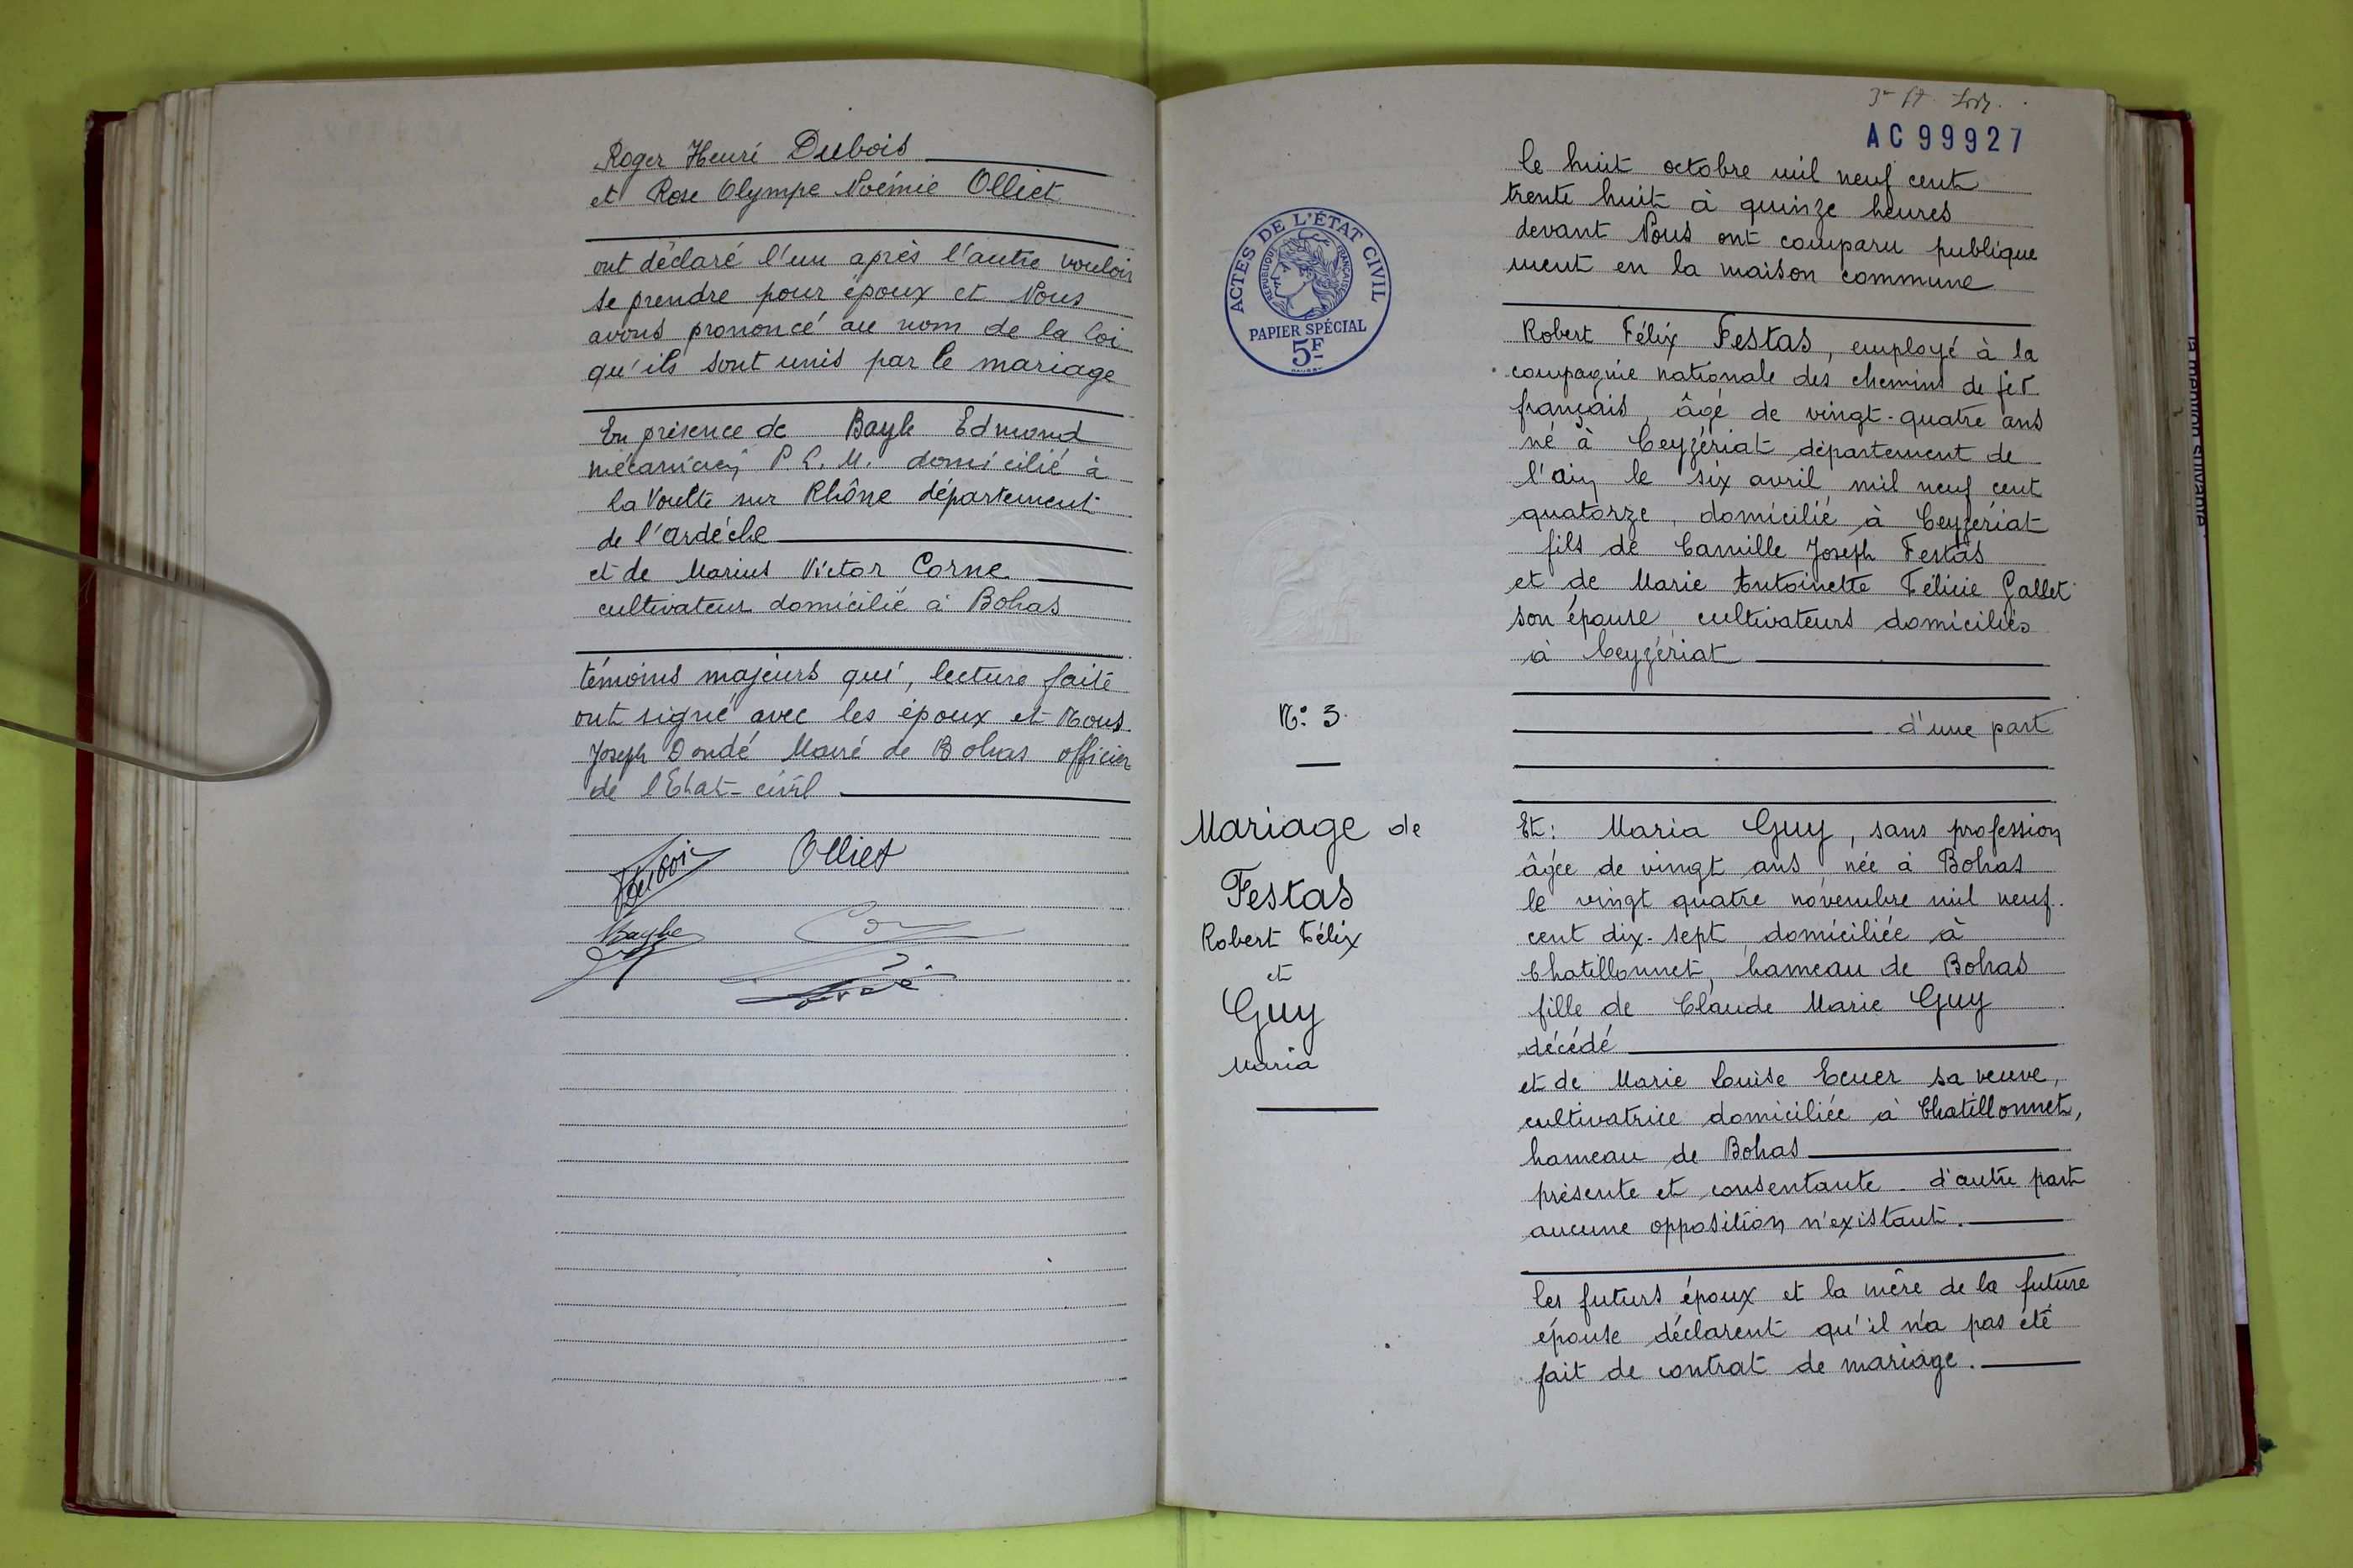 Roger Henri Dubois
et Rose Olympe Noémie Olliet
ont déclaré l'un après l'autre vouloir
se prendre pour époux et Nous
avons prononcé au nom de la loi
qu'ils sont unis par le mariage
En présence de Bayle Edmond
mécanicien P.L.M. domicilié à
la Voulte sur Rhône département
de l'Ardèche
et de Marius Victor Corne
cultivateur domicilié à Bohas
témoins majeurs qui, lecture faite
ont signé avec les époux et Nous
Joseph Dondé Maire de Bohas officier
de l'Etat-civil
Olliet
Bayle
AC 99927
ACTES DE L'ÉTAT CIVIL
RÉPUBLIQUE FRANÇAISE
PAPIER SPÉCIAL
5F
No: 3.
Mariage de
Festas
Robert Félix
et
Guy
Maria
le huit octobre mil neuf cent
trente huit à quinze heures
devant Nous ont comparu publique
ment en la maison commune
Robert Félix Festas, employé à la
compagnie nationale des chemins de fer
français, âgé de vingt-quatre ans
né à Ceyzériat département de
l'ain le six avril mil neuf cent
quatorze, domicilié à Ceyzériat
fils de Camille Joseph Festas
et de Marie Antoinette Félicie Gallet
son épouse cultivateurs domiciliés
à Ceyzériat
d'une part
Et: Maria Guy, sans profession
âgée de vingt ans née à Bohas
le vingt quatre novembre mil neuf.
cent dix-sept, domiciliée à
Chatillonnet, hameau de Bohas
fille de Claude Marie Guy
décédé
et de Marie Louise Ecuer sa veuve,
cultivatrice domiciliée à Chatillonnet,
hameau de Bohas
présente et consentante - d'autre part
aucune opposition n'existant.
les futurs époux et la mère de la future
épouse déclarent qu'il n'a pas été
fait de contrat de mariage.
la mention suivante